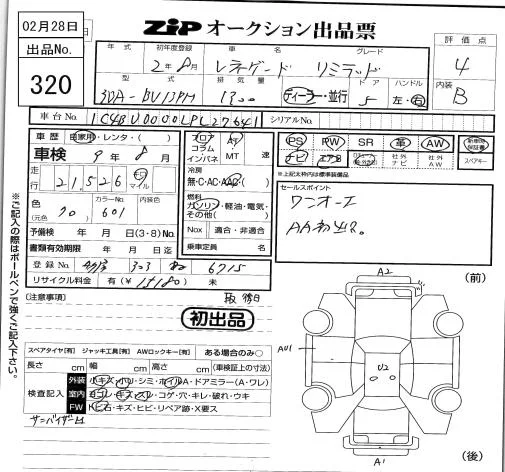 02月28日
ZIP オークション出品票
出品No.
320
年式
初年度登録
車名
グレード
評価点
2年8月
レネゲード
リミテッド
4
型式
排気量
ドア
ハンドル
内装
3DA-BV13PM
1300
ディーラー・並行
5
左・右
B
車台No.
シリアルNo.
車歴
自家用・レンタ・( )
車検
9年8月
走行
21,526
キロ
マイル
フロア
コラム
インパネ
AT
MT
速
冷房
無・C・AC・AAC・( )
燃料
ガソリン・軽油・電気・
その他( )
Nox
適合・非適合
乗車定員
名
PS
PW
SR
革
AW
ナビ
エアB
社外
ナビ
社外
AW
スペアキー
※上記太枠内は標準装備品
セールスポイント
ワンオーナー
AA初出品。
色
(元色 クロ)
カラーNo.
601
内装色
予備検
年 月 日(3・8)No.
書類有効期限
年 月 日迄
登録No.
303
6715
リサイクル料金
有(¥ )
未
(注意事項)
初出品
※ご記入の際はボールペンで強くご記入下さい。
スペアタイヤ[有] ジャッキ工具[有] AWロックキー[有] ある場合のみ○
長さ cm 幅 cm 高さ cm (車検証上の寸法)
検査記入
外装
小キズ・小ハリ・シミ・ホイルA・ドアミラー(A・ワレ)
室内
ヨゴレ・キズ・スレ・コゲ・穴・キレ・破れ・ウキ
FW
トビ石・キズ・ヒビ・リペア跡・X要ス
サンバイザーよ
A2
(前)
AU1
U2
A1
(後)